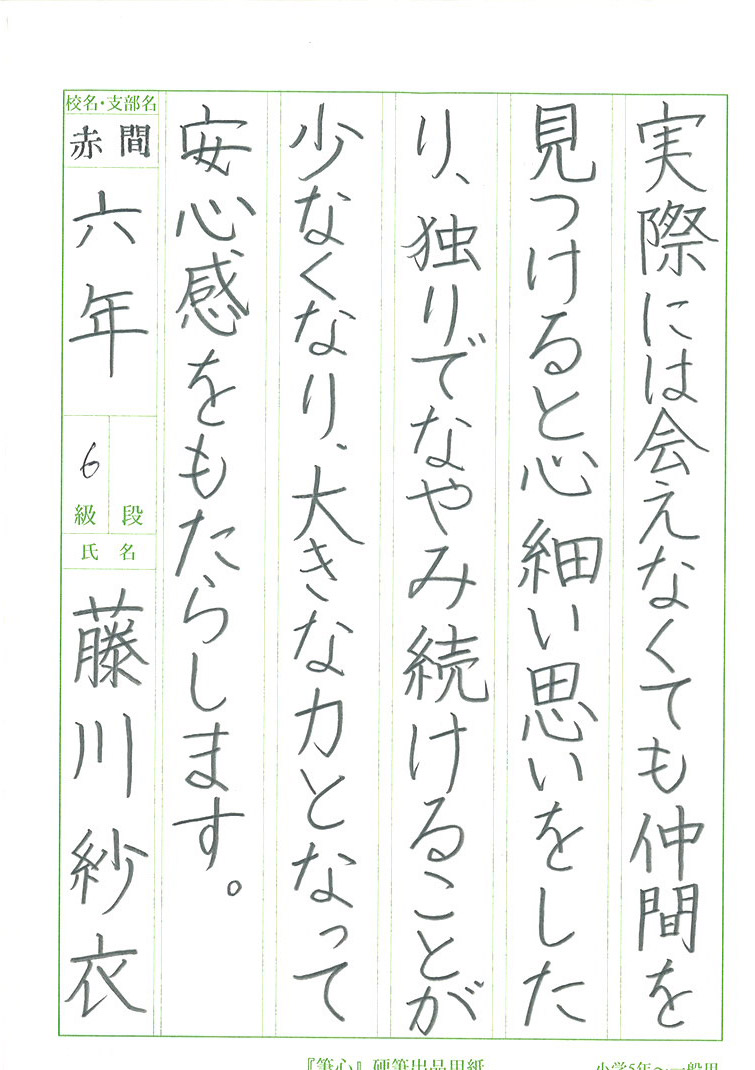 実際には会えなくても仲間を
見つけると心細い思いをした
り、独りでなやみ続けることが
少なくなり、大きな力となって
安心感をもたらします。
校名・支部名
赤間
六年
6
級 段
氏名
藤川紗衣
『筆心』硬筆出品用紙
小学5年〜一般用